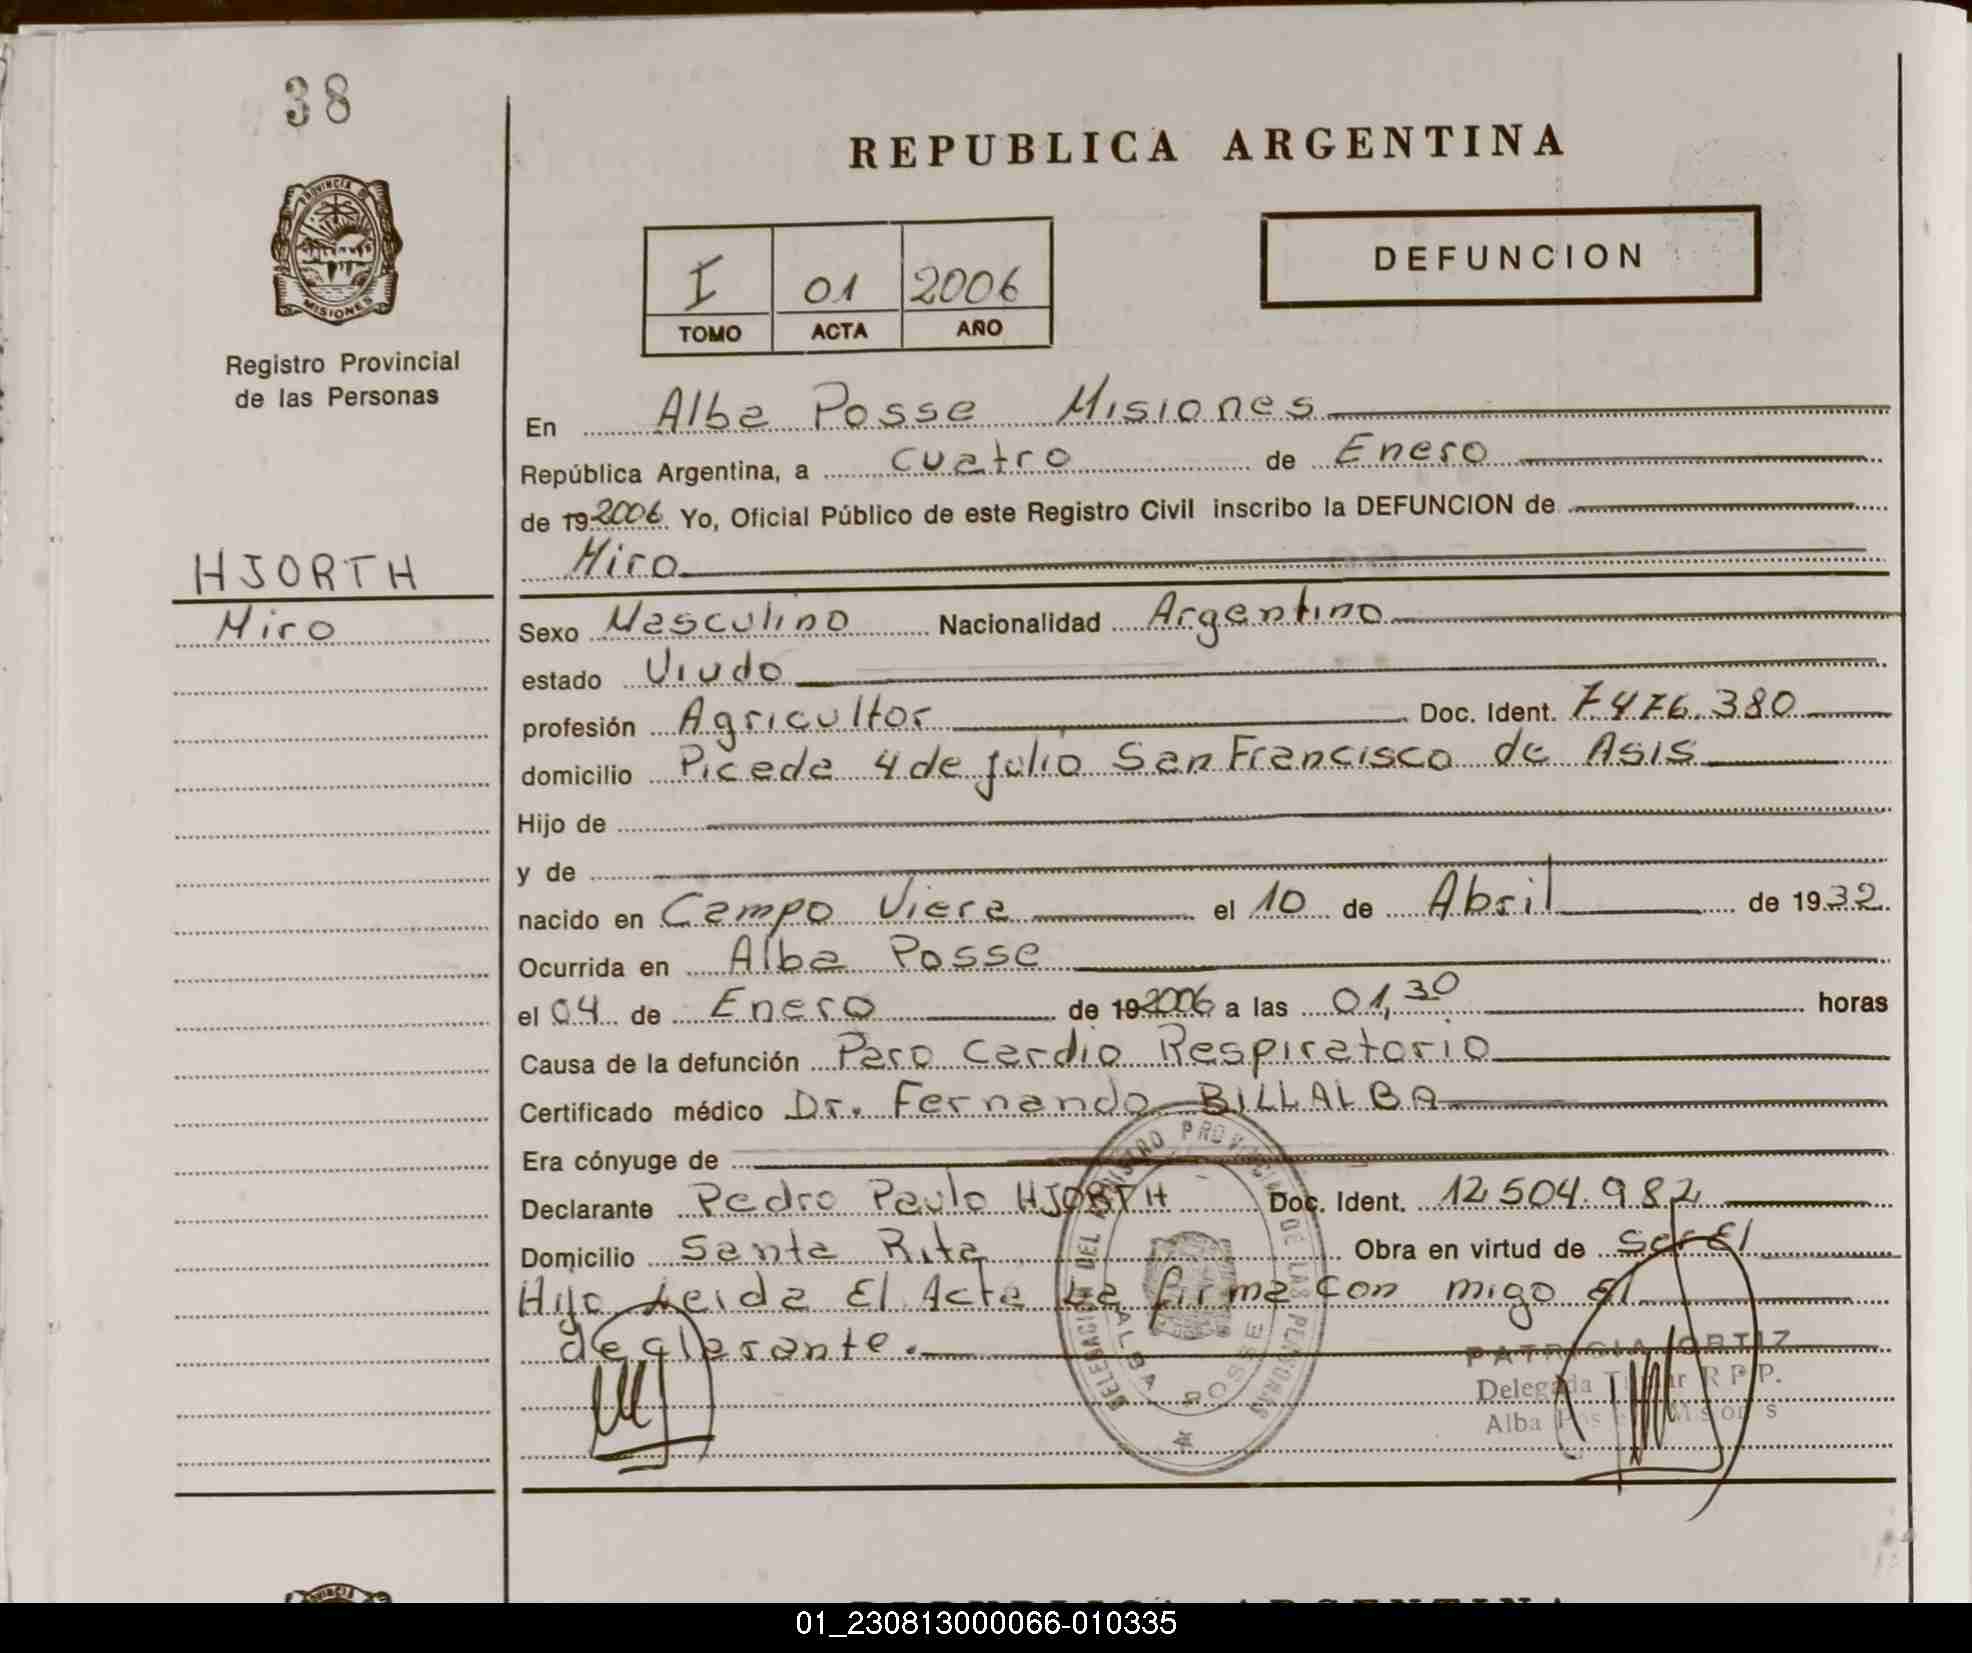 38
REPUBLICA ARGENTINA
PROVINCIA DE MISIONES
DEFUNCION
I 01 2006
TOMO ACTA AÑO
Registro Provincial
de las Personas
En Alba Posse Misiones
República Argentina, a cuatro de Enero
de 19 2006 Yo, Oficial Público de este Registro Civil inscribo la DEFUNCION de
HJORTH
Miro
Miro
Sexo Masculino Nacionalidad Argentino
estado Viudo
profesión Agricultor Doc. Ident. 7.476.380
domicilio Picada 4 de julio San Francisco de Asis
Hijo de
y de
nacido en Campo Viera el 10 de Abril de 1932
Ocurrida en Alba Posse
el 04 de Enero de 19 2006 a las 01,30 horas
Causa de la defunción Paro Cardio Respiratorio
Certificado médico Dr. Fernando BILLALBA
Era cónyuge de
Declarante Pedro Paulo HJORTH Doc. Ident. 12.504.982
Domicilio Santa Rita Obra en virtud de ser El
Hijo Leida El Acta La firma con migo el
declarante.
DELEGACION DEL REGISTRO PROVINCIAL DE LAS PERSONAS
ALBA POSSE
PATRICIA ORTIZ
Delegada Titular R P P.
Alba Posse Misiones
REPUBLICA ARGENTINA
01_230813000066-010335